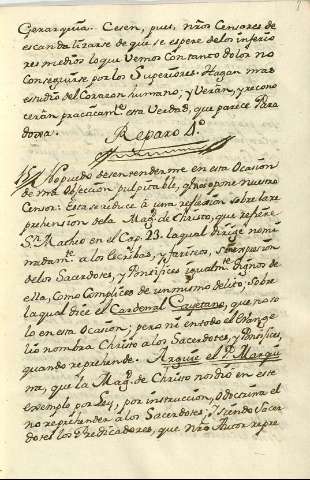 Gerarquía. Cesen, pues, nr̃os Censores de
escandalizarse de que se espere de los inferio
res medios lo que vemos con tanto dolor no
conseguirse por los Superiores. Hagan mas
estudio del Corazon humano; y verán, y recono
cerán practicam.te esta verdad, que parece Para
doxa.
Reparo 4.º
No puedo desentenderme en esta Ocasion
de una Objeccion pulpitable, q̃ nos opone nuestro
Censor. Esta se reduce à una reflexion sobre la re
prehension de la Mag.d de Christo, que refiere
S.n Matheo en el Cap. 23. la qual dirige nomi
nadam.te a los Escribas, y Fariseos, sin expresion
de los Sacerdotes, y Pontifices igualm.te dignos de
ella, como Complices de un mismo delito; sobre
la qual dice el Cardenal Cayetano, que no so
lo en esta Ocasion; pero ni en todo el Evange
lio nombra Christo a los Sacerdotes, y Pontifices,
quando reprehende. Arguie el P. Marqui
na, que la Mag.d de Christo nos dió en este
exemplo por Ley, por instruccion, o doctrina el
no reprehender a los Sacerdotes; y siendo Sacer
dotes los Predicadores, que nr̃o Autor repre